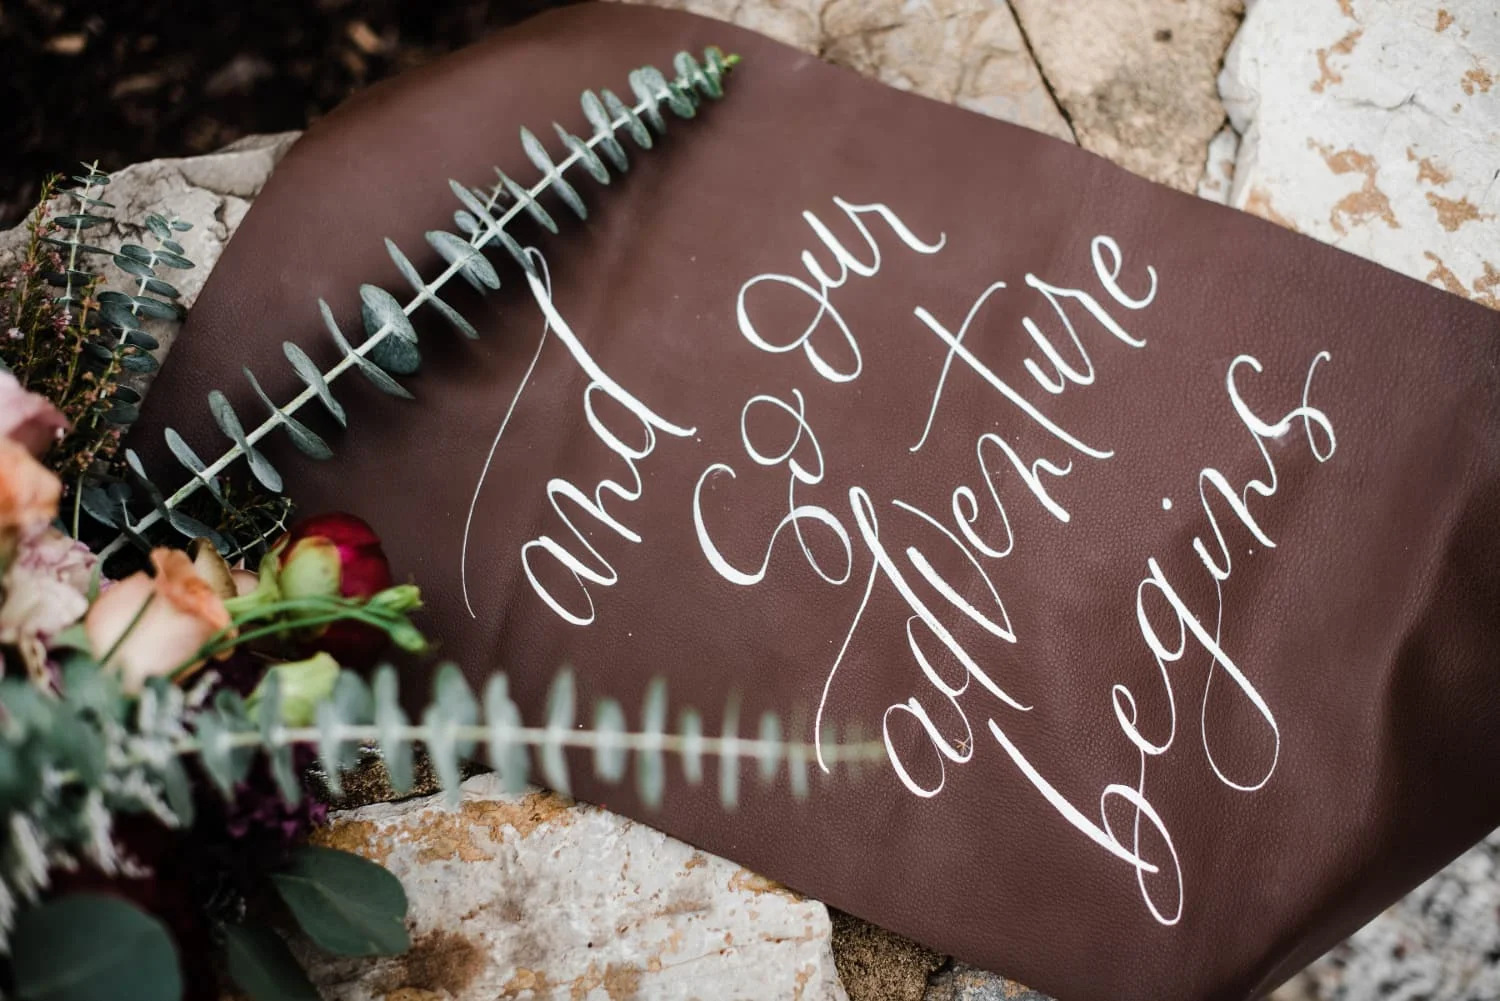 and
So Our
adventure
begins